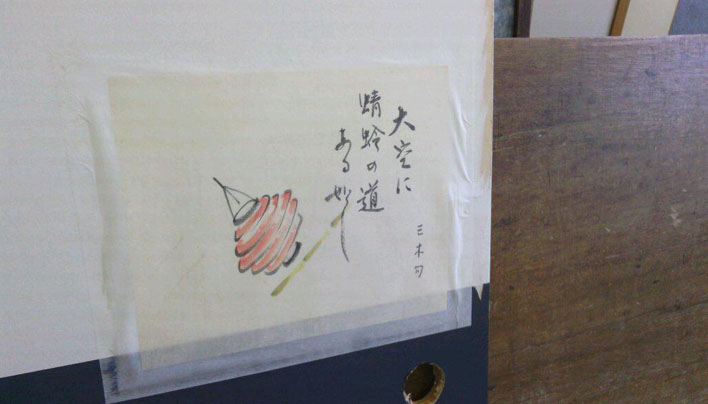 大空に
蜻蛉の道
ある如し
三木句